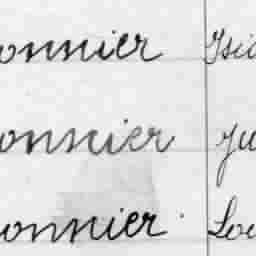 onnier Isid
onnier Ju
onnier Lou